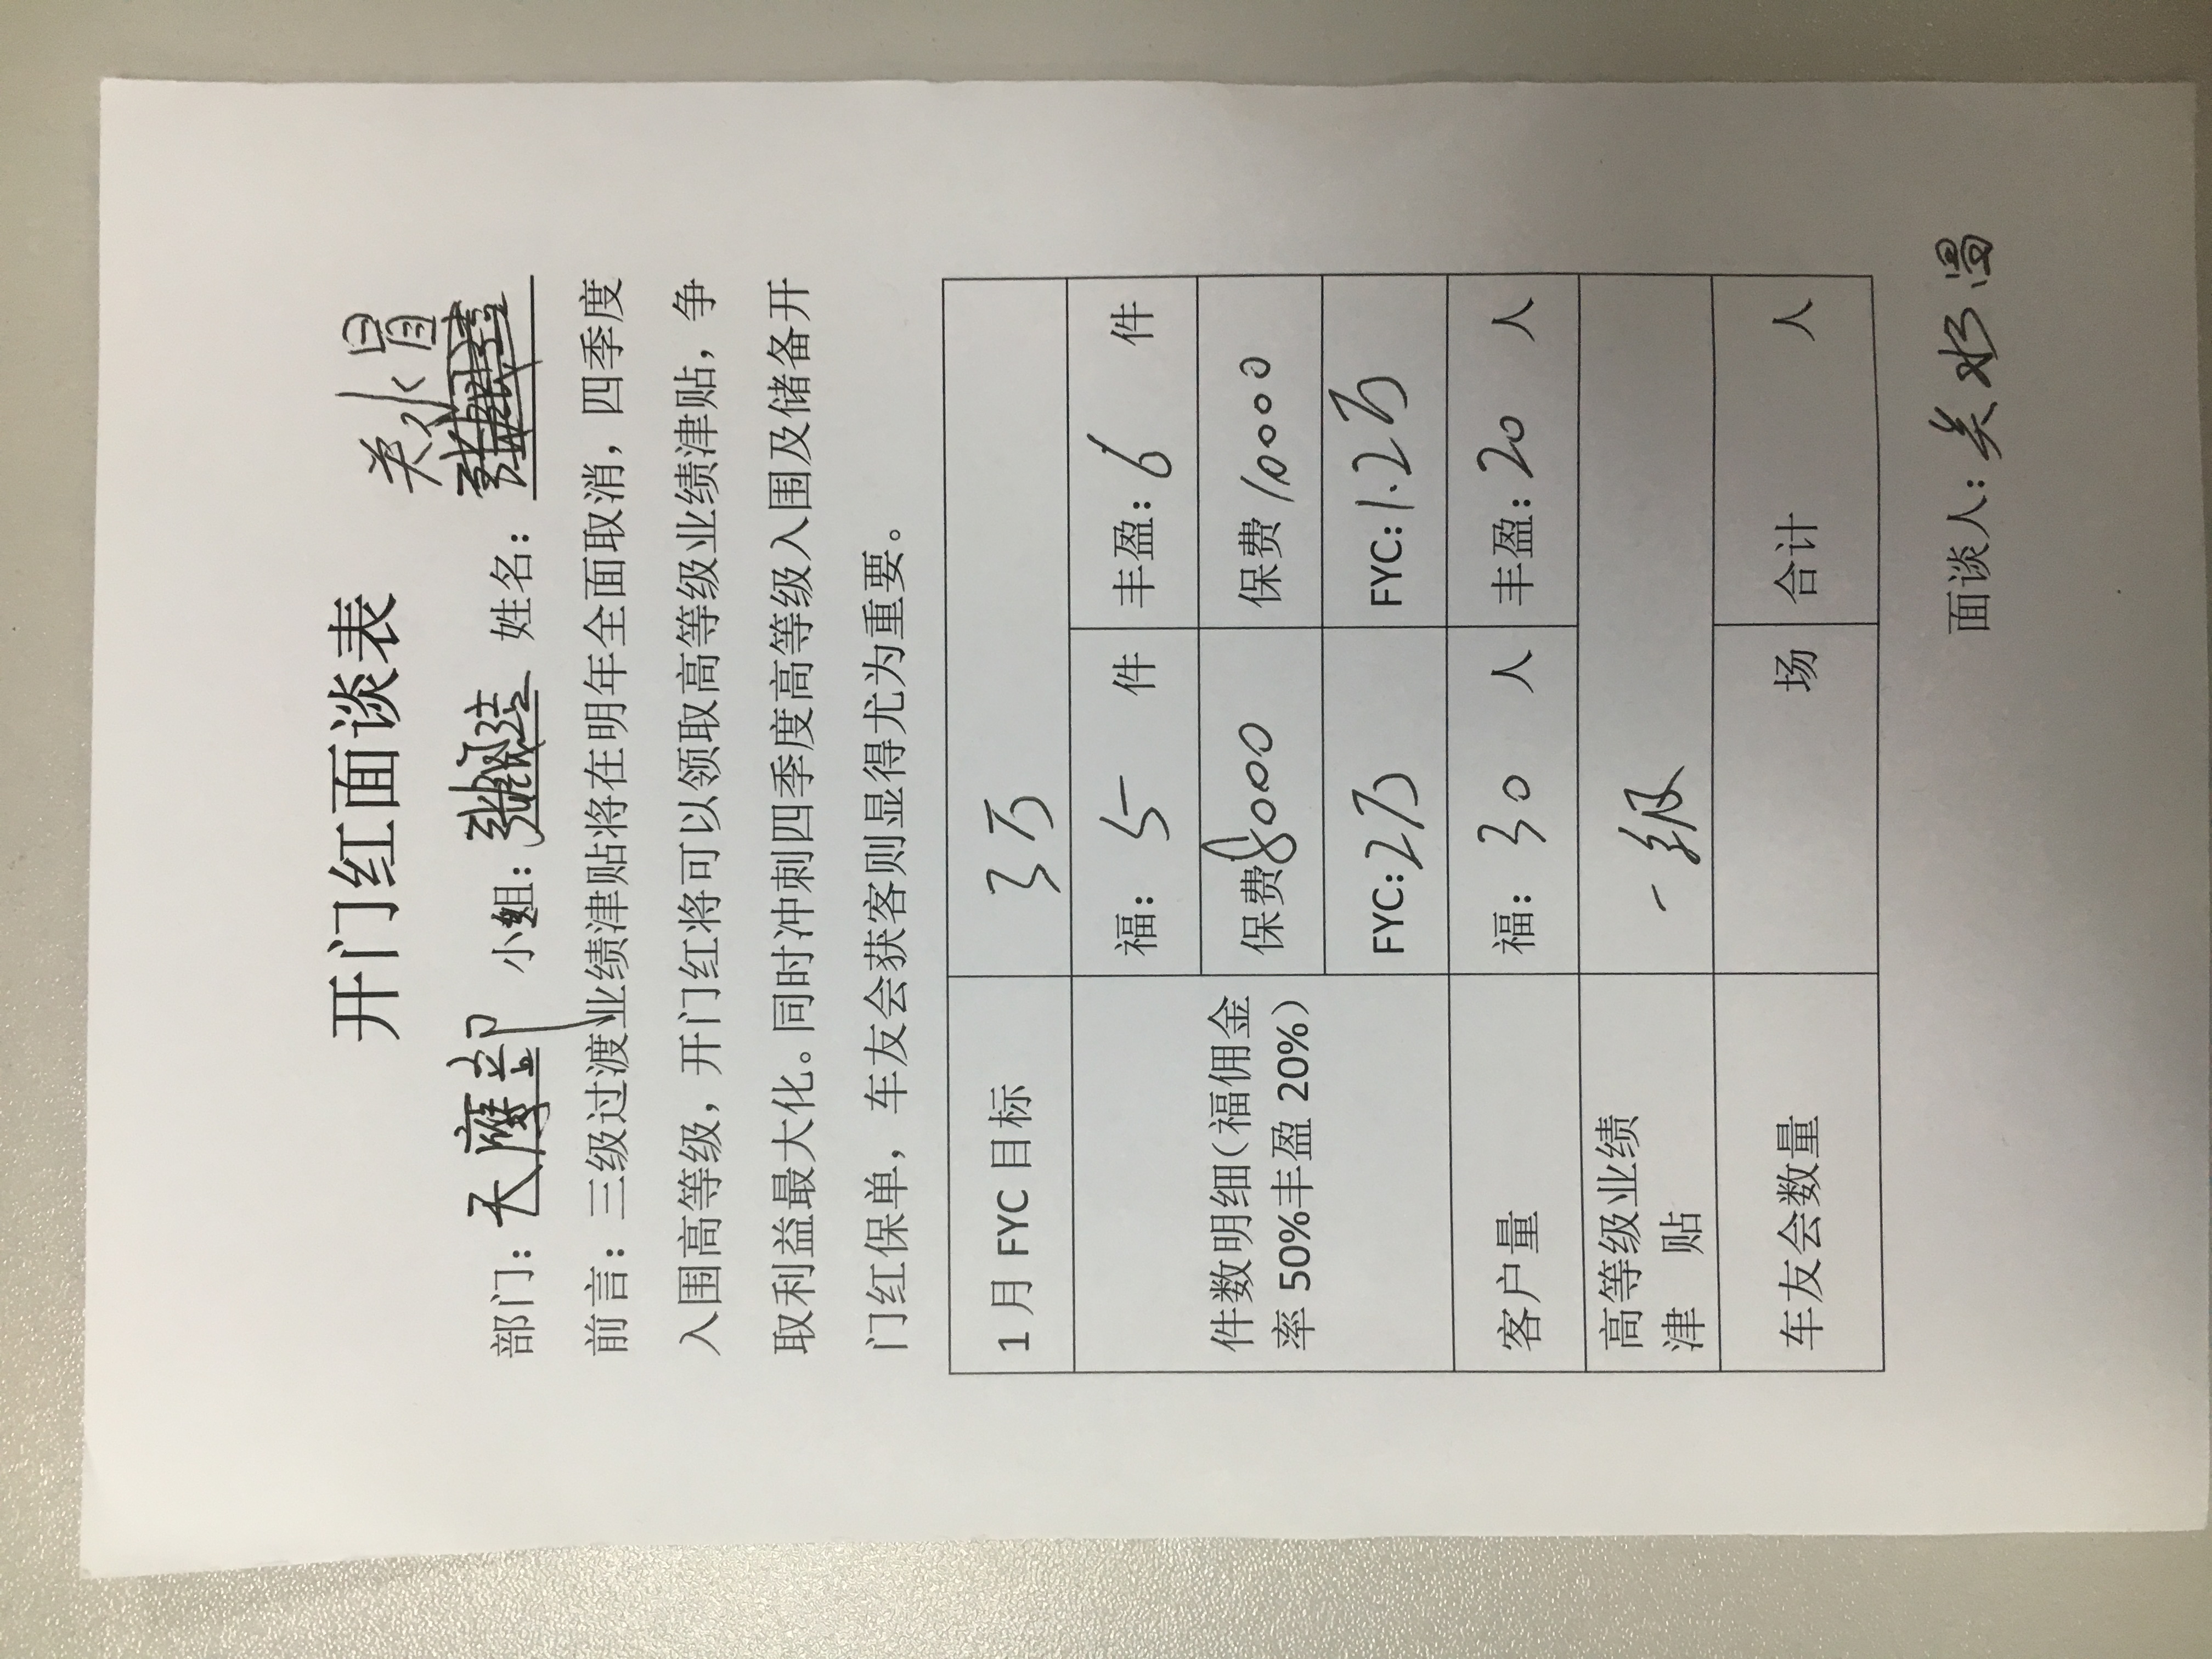 开门红面谈表
关水昌
部门：天鹰部 小组： 姓名：
前言：三级过渡业绩津贴将在明年全面取消，四季度
入围高等级，开门红将可以领取高等级业绩津贴，争
取利益最大化。同时冲刺四季度高等级入围及储备开
门红保单，车友会获客则显得尤为重要。
1 月 FYC 目标 3万
福：5 件 丰盈：6 件
件数明细（福佣金率 50%丰盈 20%） 保费8000 保费10000
FYC：2万 FYC：1.2万
客户量 福：30 人 丰盈：20 人
高等级业绩津 贴 一级
车友会数量 场 合计 人
面谈人：关水昌